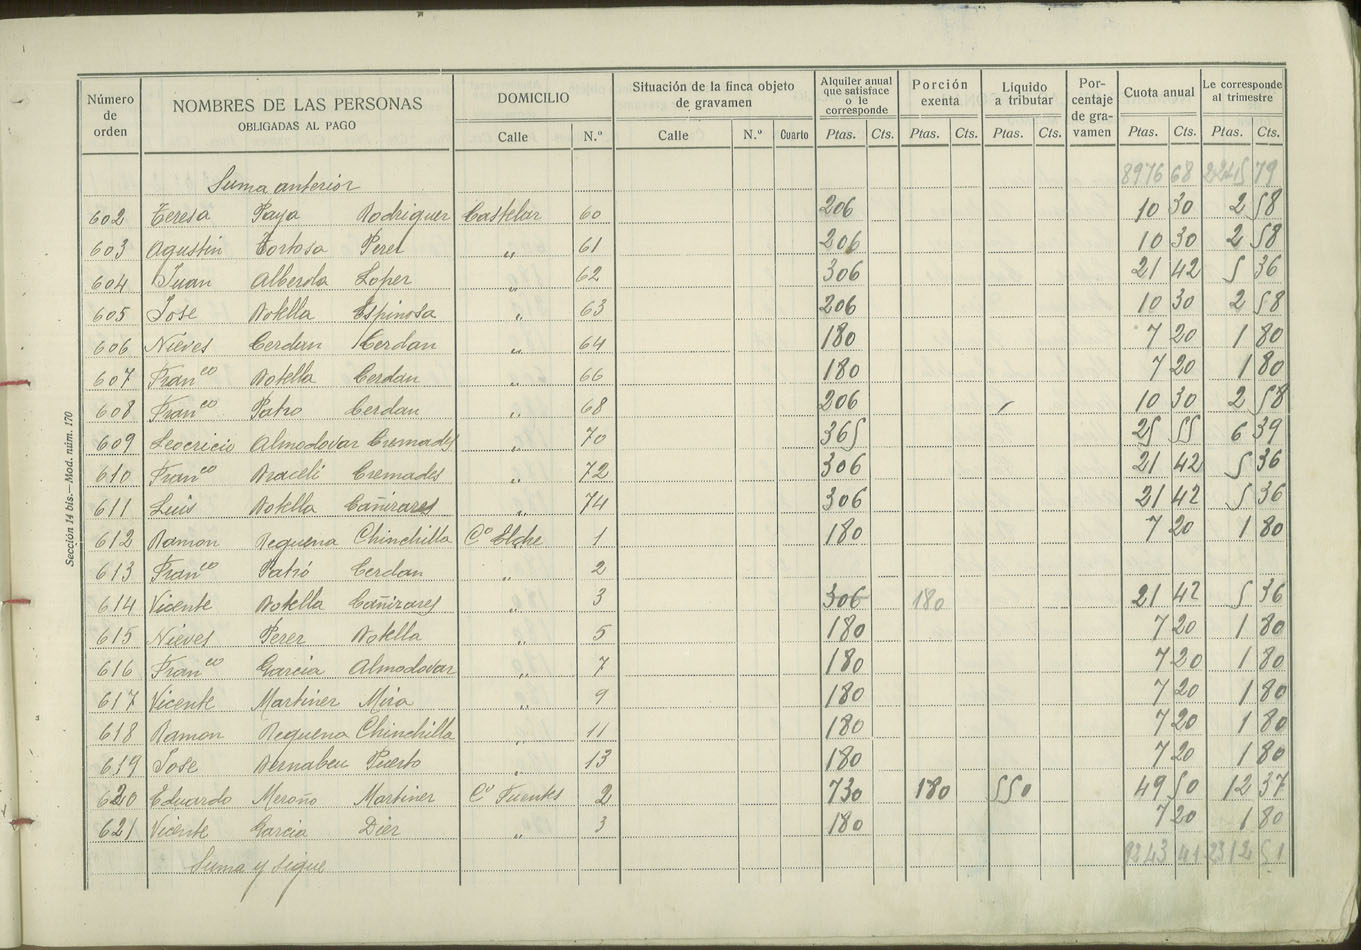 Número de orden
NOMBRES DE LAS PERSONAS
OBLIGADAS AL PAGO
DOMICILIO
Calle N.º
Situación de la finca objeto de gravamen
Calle N.º Cuarto
Alquiler anual que satisface o le corresponde
Ptas. Cts.
Porción exenta
Ptas. Cts.
Líquido a tributar
Ptas. Cts.
Por-centaje de gra-vamen
Cuota anual
Ptas. Cts.
Le corresponde al trimestre
Ptas. Cts.
Suma anterior 8976 68 2245 79
602 Teresa Paya Rodriguez Castelar 60 206 10 30 2 58
603 Agustin Tortosa Perez " 61 206 10 30 2 58
604 Juan Alberola Lopez " 62 306 21 42 5 36
605 Jose Botella Espinosa " 63 206 10 30 2 58
606 Nieves Cerdan Cerdan " 64 180 7 20 1 80
607 Franco Botella Cerdan " 66 180 7 20 1 80
608 Franco Patro Cerdan " 68 206 10 30 2 58
609 Leocricio Almodovar Cremades " 70 365 25 55 6 39
610 Franco Braceli Cremades " 72 306 21 42 5 36
611 Luis Botella Cañizares " 74 306 21 42 5 36
612 Ramon Requena Chinchilla Cº Elche 1 180 7 20 1 80
613 Franco Patró Cerdan " 2
614 Vicente Botella Cañizares " 3 306 180 21 42 5 36
615 Nieves Perez Botella " 5 180 7 20 1 80
616 Franco Garcia Almodovar " 7 180 7 20 1 80
617 Vicente Martinez Mira " 9 180 7 20 1 80
618 Ramon Requena Chinchilla " 11 180 7 20 1 80
619 Jose Bernabeu Puerto " 13 180 7 20 1 80
620 Eduardo Meroño Martinez Cº Fuentes 2 730 180 550 49 50 12 37
621 Vicente Garcia Diez " 3 180 7 20 1 80
Suma y sigue 9243 41 2312 51
Sección 14 bis.—Mod. núm. 170